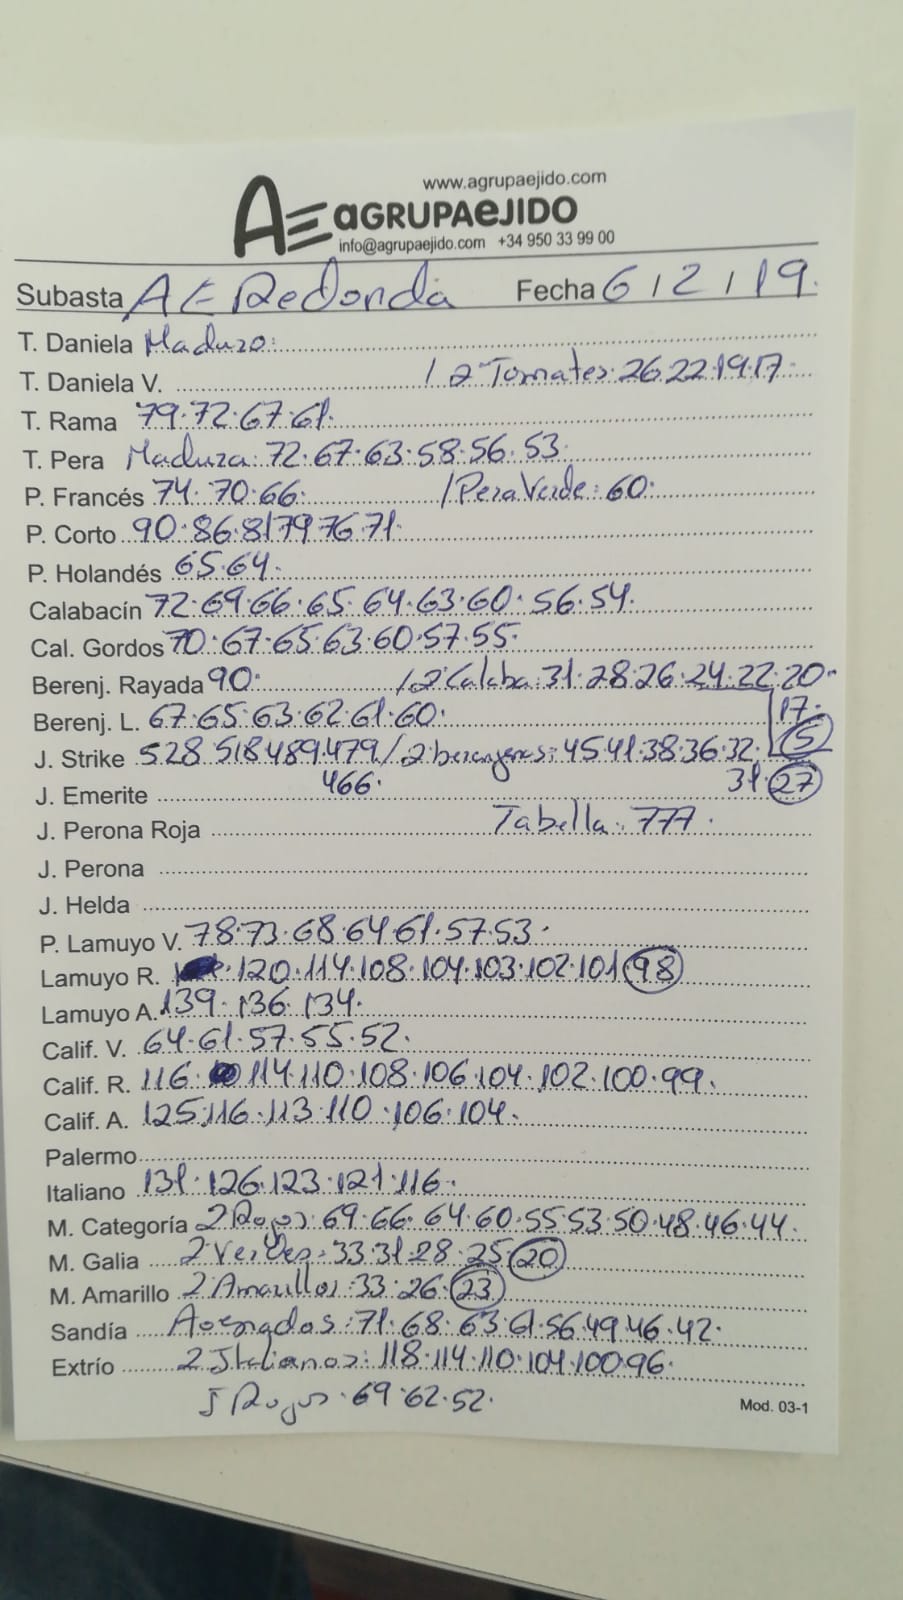 www.agrupaejido.com
AE aGRUPAeJIDO
info@agrupaejido.com +34 950 33 99 00
Subasta AE Redonda Fecha 6/2/19.
T. Daniela Maduro:
T. Daniela V. / 2ª Tomates: 26.22.19.17.
T. Rama 79.72.67.61.
T. Pera Madura: 72.67.63.58.56.53.
P. Francés 74.70.66. / Pera Verde: 60.
P. Corto 90.86.81.79.76.71.
P. Holandés 65.64.
Calabacín 72.69.66.65.64.63.60.56.54.
Cal. Gordos 70.67.65.63.60.57.55.
Berenj. Rayada 90. / 2ª Calaba: 31.28.26.24.22.20.
Berenj. L. 67.65.63.62.61.60. 17.
J. Strike 528.518.489.479 / 2 berenjenas: 45.41.38.36.32. 5
J. Emerite 466. 31.27
J. Perona Roja Tabella: 777.
J. Perona
J. Helda
P. Lamuyo V. 78.73.68.64.61.57.53.
Lamuyo R. 120.114.108.104.103.102.101 98
Lamuyo A. 139.136.134.
Calif. V. 64.61.57.55.52.
Calif. R. 116. 114.110.108.106.104.102.100.99.
Calif. A. 125.116.113.110.106.104.
Palermo
Italiano 131.126.123.121.116.
M. Categoría 2 Rojos: 69.66.64.60.55.53.50.48.46.44.
M. Galia 2 Verdes: 33.31.28.25. 20
M. Amarillo 2 Amarillos: 33.26. 23
Sandía Asurcados: 71.68.63.61.56.49.46.42.
Extrío 2 Italianos: 118.114.110.104.100.96.
Rojos: 69.62.52.
Mod. 03-1